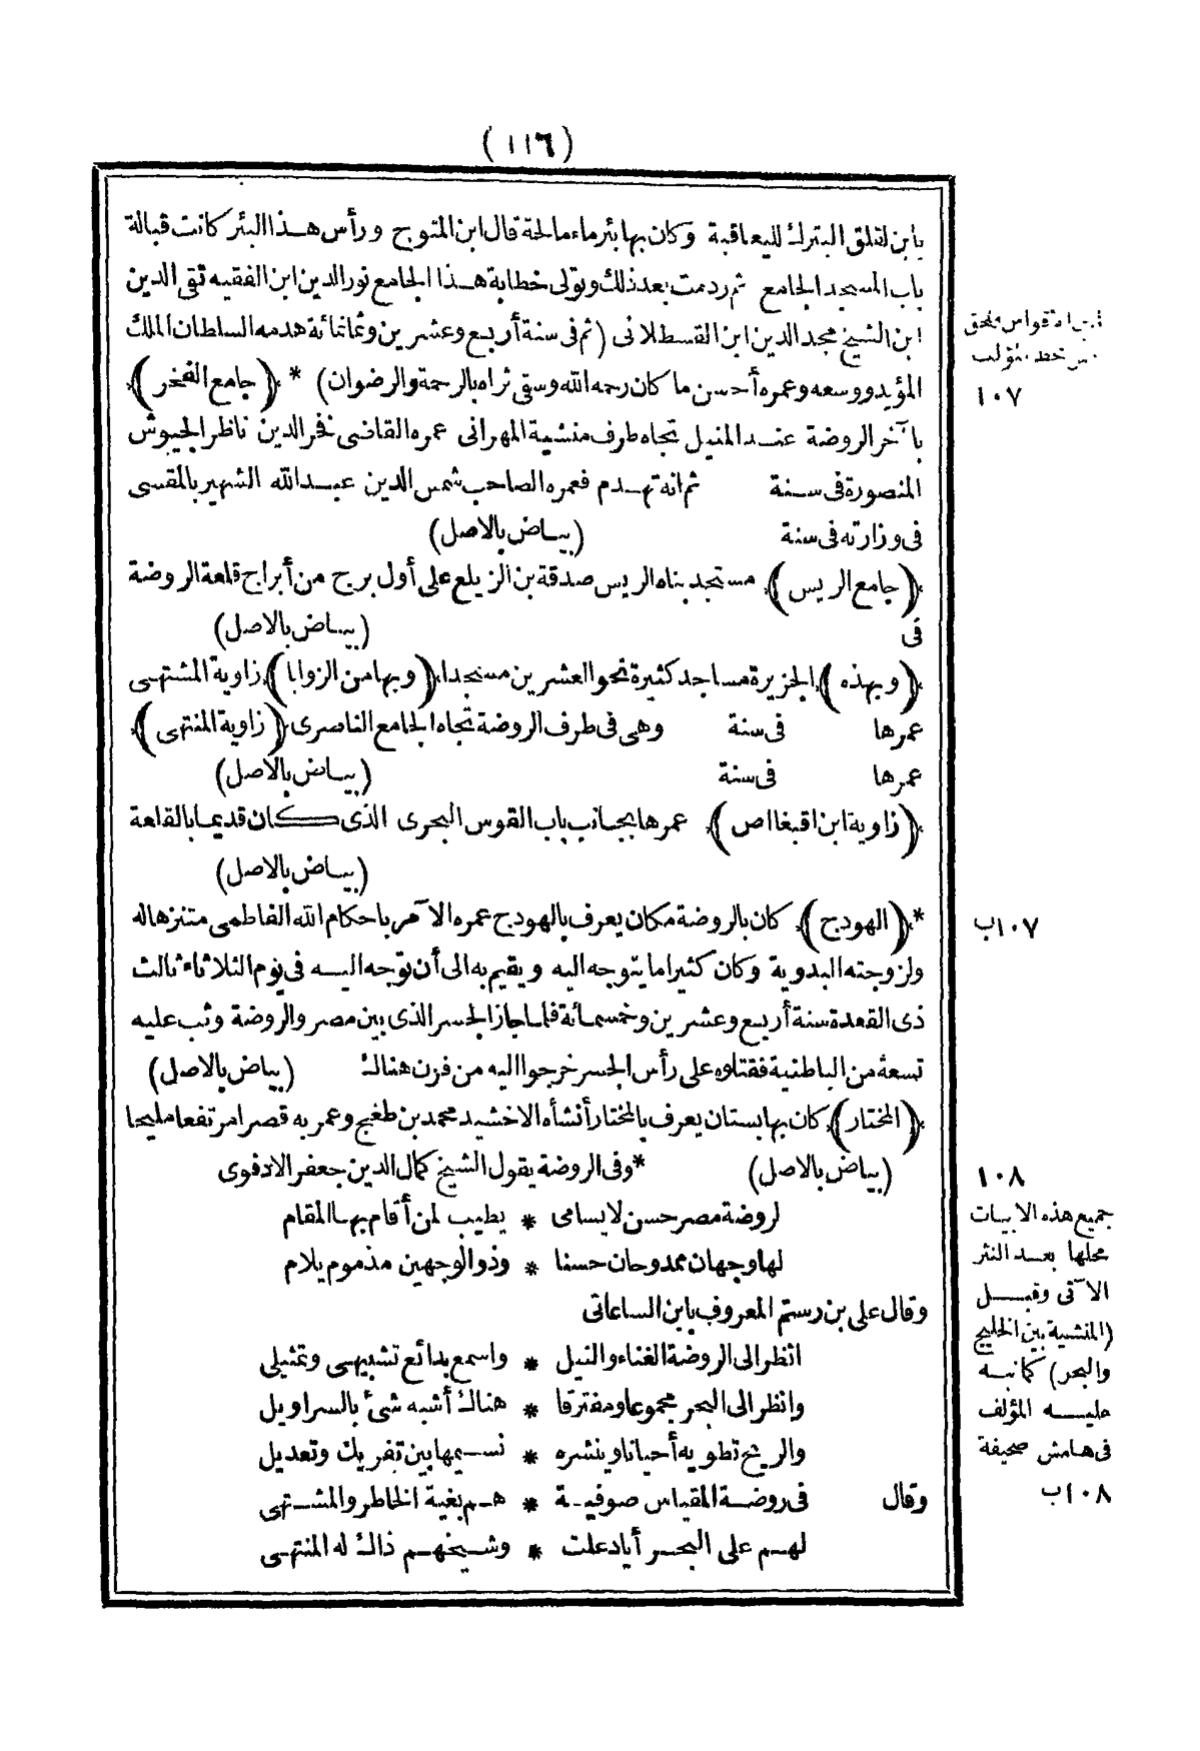 (١١٦)
بابن لقلق البترك لليعاقبة وكان بها بئر ماء مالحة قال ابن المتوج ورأس هذا البئر كانت قبالة
باب المسجد الجامع ثم ردمت بعد ذلك وتولى خطابة هذا الجامع نور الدين ابن الفقيه تقى الدين
ابن الشيخ مجد الدين ابن القسطلانى (ثم فى سنة أربع وعشرين وثمانمائة هدمه السلطان الملك
المؤيد ووسعه وعمره أحسن ما كان رحمه الله وسقى ثراه بالرحمة والرضوان) * (جامع الفخر)
١٠٧
بآخر الروضة عند المنيل تجاه طرف منشية المهرانى عمره القاضى فخر الدين ناظر الجيوش
المنصورة فى سنة ثم انه تهدم فعمره الصاحب شمس الدين عبد الله الشهير بالمقسى
فى وزارته فى سنة (بياض بالاصل)
(جامع الريس) مستجد بناه الريس صدقة بن الزيلع على أول برج من أبراج قلعة الروضة
فى (بياض بالاصل)
(وبهذه) الجزيرة مساجد كثيرة نحو العشرين مسجدا (وبها من الزوايا) زاوية المشتهى
عمرها فى سنة وهى فى طرف الروضة تجاه الجامع الناصرى (زاوية المنتهى)
عمرها فى سنة (بياض بالاصل)
(زاوية ابن اقبغااص) عمرها بجانب باب القوس البحرى الذى كان قديما بالقلعة
(بياض بالاصل)
* (الهودج) كان بالروضة مكان يعرف بالهودج عمره الآمر باحكام الله الفاطمى متنزها له
١٠٧ب
ولزوجته البدوية وكان كثيرا ما يتوجه اليه ويقيم به الى أن توجه اليه فى يوم الثلاثاء ثالث
ذى القعدة سنة أربع وعشرين وخمسمائة فلما جاز الجسر الذى بين مصر والروضة وثب عليه
تسعة من الباطنية فقتلوه على رأس الجسر خرجوا اليه من فرن هناك (بياض بالاصل)
(المختار) كان بها بستان يعرف بالمختار أنشأه الاخشيد محمد بن طغج وعمر به قصرا مرتفعا مليحا
(بياض بالاصل) * وفى الروضة يقول الشيخ كمال الدين جعفر الادفوى
لروضة مصر حسن لا يسامى * يطيب لمن أقام بها المقام
لها وجهان ممدوحان حسنا * وذو الوجهين مذموم يلام
وقال على بن رستم المعروف بابن الساعاتى
انظر الى الروضة الغناء والنيل * واسمع بدائع تشبيهى وتمثيلى
وانظر الى البحر مجموعا ومفترقا * هناك أشبه شئ بالسراويل
والريح تطويه أحيانا وينشره * نسيمها بين تفريك وتعديل
وقال فى روضة المقياس صوفية * هم بغية الخاطر والمشتهى
لهم على البحر أياد علت * وشيخهم ذاك له المنتهى
١٠٨
جميع هذه الابيات
محلها بعد النثر
الآتى وقبل
(المنشية بين الخليج
والبحر) كما نبه
عليه المؤلف
فى هامش صحيفة
١٠٨ب